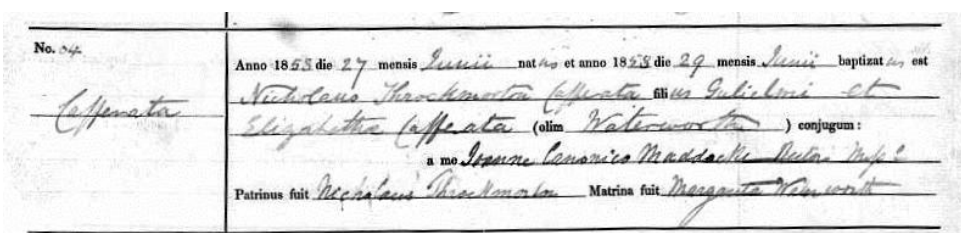 No.
Anno 18 die 27 mensis Junii natus et anno 18 die 29 mensis Junii baptizatus est
Cafferata
Nicholaus Throckmorton Cafferata filius Gulielmi et
Elizabetha Cafferata (olim Waterworth) conjugum:
a me Joanne Canonico
Patrinus fuit Nicholaus Throckmorton Matrina fuit Margarita Waterworth